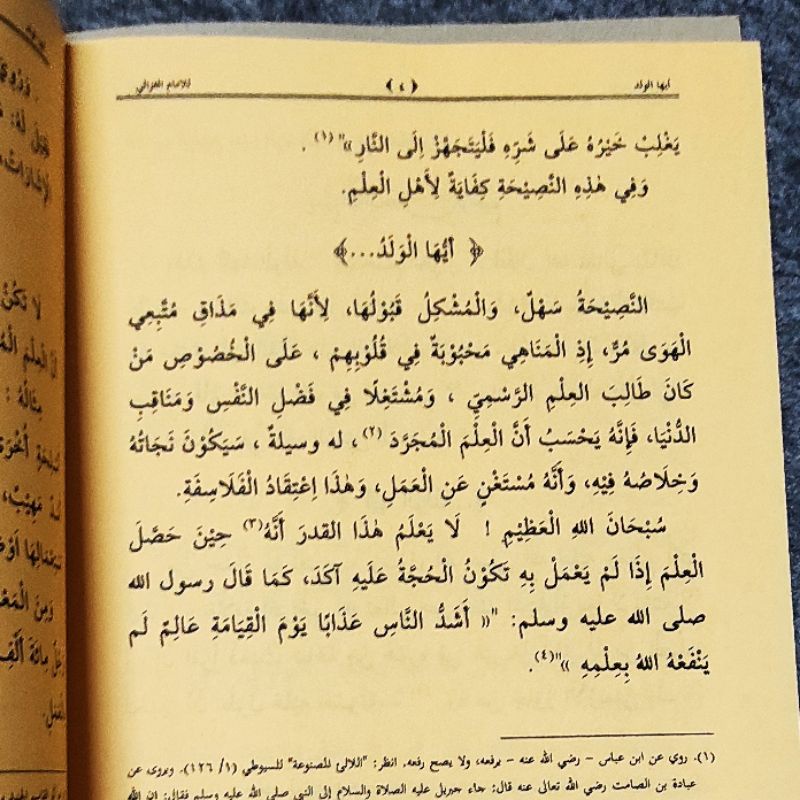 أيها الولد ﴿ ٤ ﴾ للامام الغزالي
يَغْلِبْ خَيْرُهُ عَلَى شَرِّهِ فَلْيَتَجَهَّزْ اِلَى النَّارِ»" (١) .
وَفِي هٰذِهِ النَّصِيْحَةِ كِفَايَةٌ لِأَهْلِ الْعِلْمِ.
﴿ أَيُّهَا الْوَلَدُ...﴾
النَّصِيْحَةُ سَهْلٌ، وَالْمُشْكِلُ قَبُوْلُهَا، لِأَنَّهَا فِي مَذَاقِ مُتَّبِعِي
الْهَوَى مُرٌّ، إِذِ الْمَنَاهِي مَحْبُوْبَةٌ فِي قُلُوْبِهِمْ ، عَلَى الْخُصُوْصِ مَنْ
كَانَ طَالِبَ العِلْمِ الرَّسْمِيِّ ، وَمُشْتَغِلًا فِي فَضْلِ النَّفْسِ وَمَنَاقِبِ
الدُّنْيَا، فَإِنَّهُ يَحْسَبُ أَنَّ الْعِلْمَ الْمُجَرَّدَ (٢) ، له وسيلةٌ ، سَيَكُوْنُ نَجَاتُهُ
وَخِلَاصُهُ فِيْهِ، وَأَنَّهُ مُسْتَغْنٍ عَنِ الْعَمَلِ، وَهٰذَا اِعْتِقَادُ الْفَلَاسِفَةِ.
سُبْحَانَ اللهِ الْعَظِيْمِ ! لَا يَعْلَمُ هٰذَا القدرَ أَنَّهُ (٣) حِيْنَ حَصَّلَ
الْعِلْمَ إِذَا لَمْ يَعْمَلْ بِهِ تَكُوْنُ الْحُجَّةُ عَلَيْهِ آكَدَ، كَمَا قَالَ رسول الله
صلى الله عليه وسلم: "« أَشَدُّ النَّاسِ عَذَابًا يَوْمَ الْقِيَامَةِ عَالِمٌ لَم
يَنْفَعْهُ اللهُ بِعِلْمِهِ »"(٤).
(١). روي عن ابن عباس – رضي الله عنه – يرفعه، ولا يصح رفعه. انظر: "اللآلئ المصنوعة" للسيوطي (١/ ١٢٦). ويروى عن
عبادة بن الصامت رضي الله تعالى عنه قال: جاء جبريل عليه الصلاة والسلام إلى النبي صلى الله عليه وسلم فقال: إن الله